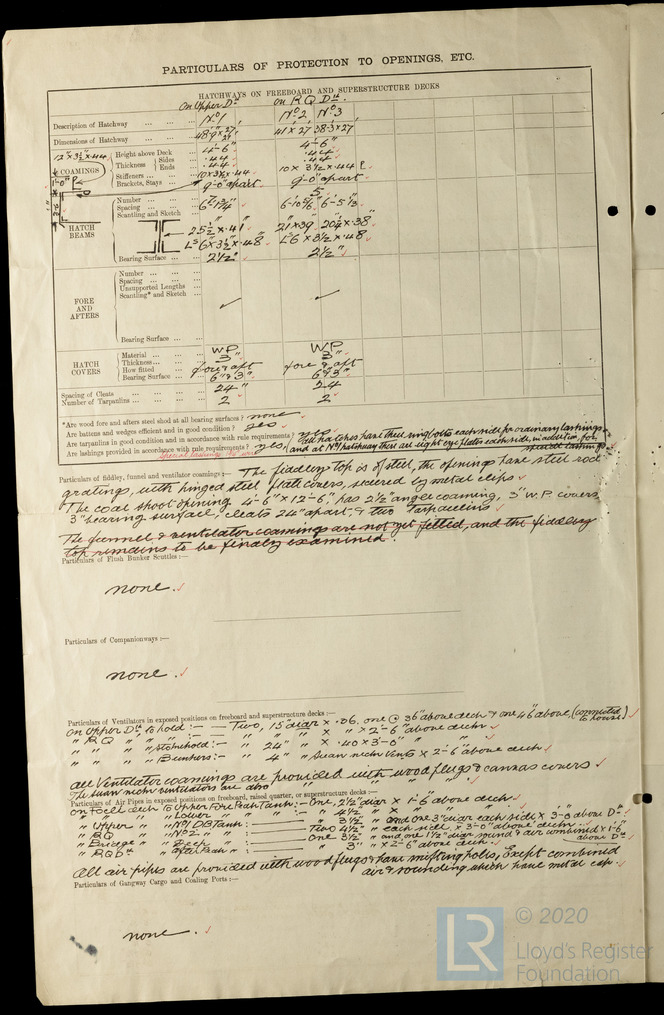 PARTICULARS OF PROTECTION TO OPENINGS, ETC.
HATCHWAYS ON FREEBOARD AND SUPERSTRUCTURE DECKS
On Upper Dk on R Q Dk.
Description of Hatchway No 1 No 2 No 3
Dimensions of Hatchway 41 x 27 38·3 x 27
12" x 3½" x ·44
COAMINGS
Height above Deck 4-6" 4-6"
Thickness Sides ·44 ·44
Ends ·44 ·44
Stiffeners 10 x 3½ x 44 10 x 3½ x 44
Brackets, Stays 9-0" apart 9-0" apart
HATCH BEAMS
Number 5
Spacing 6-10 6-5⅓
Scantling and Sketch
25½" x ·41" 21" x 39 20¼ x 38
Ls 6 x 3½ x ·48 Ls 6 x 3½ x ·48
Bearing Surface 2½" 2½"
FORE AND AFTERS
Number
Spacing
Unsupported Lengths
Scantling* and Sketch
✓ ✓
Bearing Surface
HATCH COVERS
Material W P W P
Thickness 3" 3"
How fitted fore & aft fore & aft
Bearing Surface 6 & 3" 6 & 3"
Spacing of Cleats 24" 24
Number of Tarpaulins 2 2
*Are wood fore and afters steel shod at all bearing surfaces? none
Are battens and wedges efficient and in good condition? yes
Are tarpaulins in good condition and in accordance with rule requirements? yes
Are lashings provided in accordance with rule requirements? yes, all hatches have three ring bolts each side for ordinary lashings
(and at No 1 hatchway there are eight eye plates each side in addition, for
special lashings
Particulars of fiddley, funnel and ventilator coamings:— The fiddley top is of steel, the openings have steel rod
gratings, with hinged steel flat covers, secured by metal clips
The coal shoot opening 4-6" x 12-6", has 2½" angle coaming, 3" W.P. covers
3" bearing surface, cleats 24" apart, & two tarpaulins
The funnel & ventilator coamings are not yet fitted, and the fiddley
top remains to be finally examined.
Particulars of Flush Bunker Scuttles:—
none.
Particulars of Companionways:—
none.
Particulars of Ventilators in exposed positions on freeboard and superstructure decks:—
On Upper Dk to hold:— Two, 15" diar x ·06. one @ 36" above deck & one 46" above (connected to house)
" R Q " " " " " " x " x 2-6" above deck
" " " " Stokehold:— " 24" " x ·40 x 3-0" " "
" " " " Bunkers:— " 4" " Swan neck vents x 2-6" above deck
All Ventilator coamings are provided with wood plugs & canvas covers
The swan neck ventilators are also " " " " "
Particulars of Air Pipes in exposed positions on freeboard, raised quarter, or superstructure decks:—
On Fcsl deck to Upper Fore Peak Tank:— One, 2½" diar x 1-6" above deck
" " " " Lower " " " " 4½" " x " " "
" Upper " " No 1 DB Tank:— " 3½" " and one 3" diar each side x 3-0 above Dk
" RQ " " No 2 " " Two 4½" " each side x 3-0" above deck
" Bridge " " Deep " one 3½" " and one 1½" diar sound & air combined x 1-6 above Dk
" RQ Dk " After Peak " 3" " x 2-6" above deck.
All air pipes are provided with wood plugs & have holes, Except combined
air & sounding which have metal cap.
Particulars of Gangway Cargo and Coaling Ports:—
none.
LR
© 2020
Lloyd's Register
Foundation